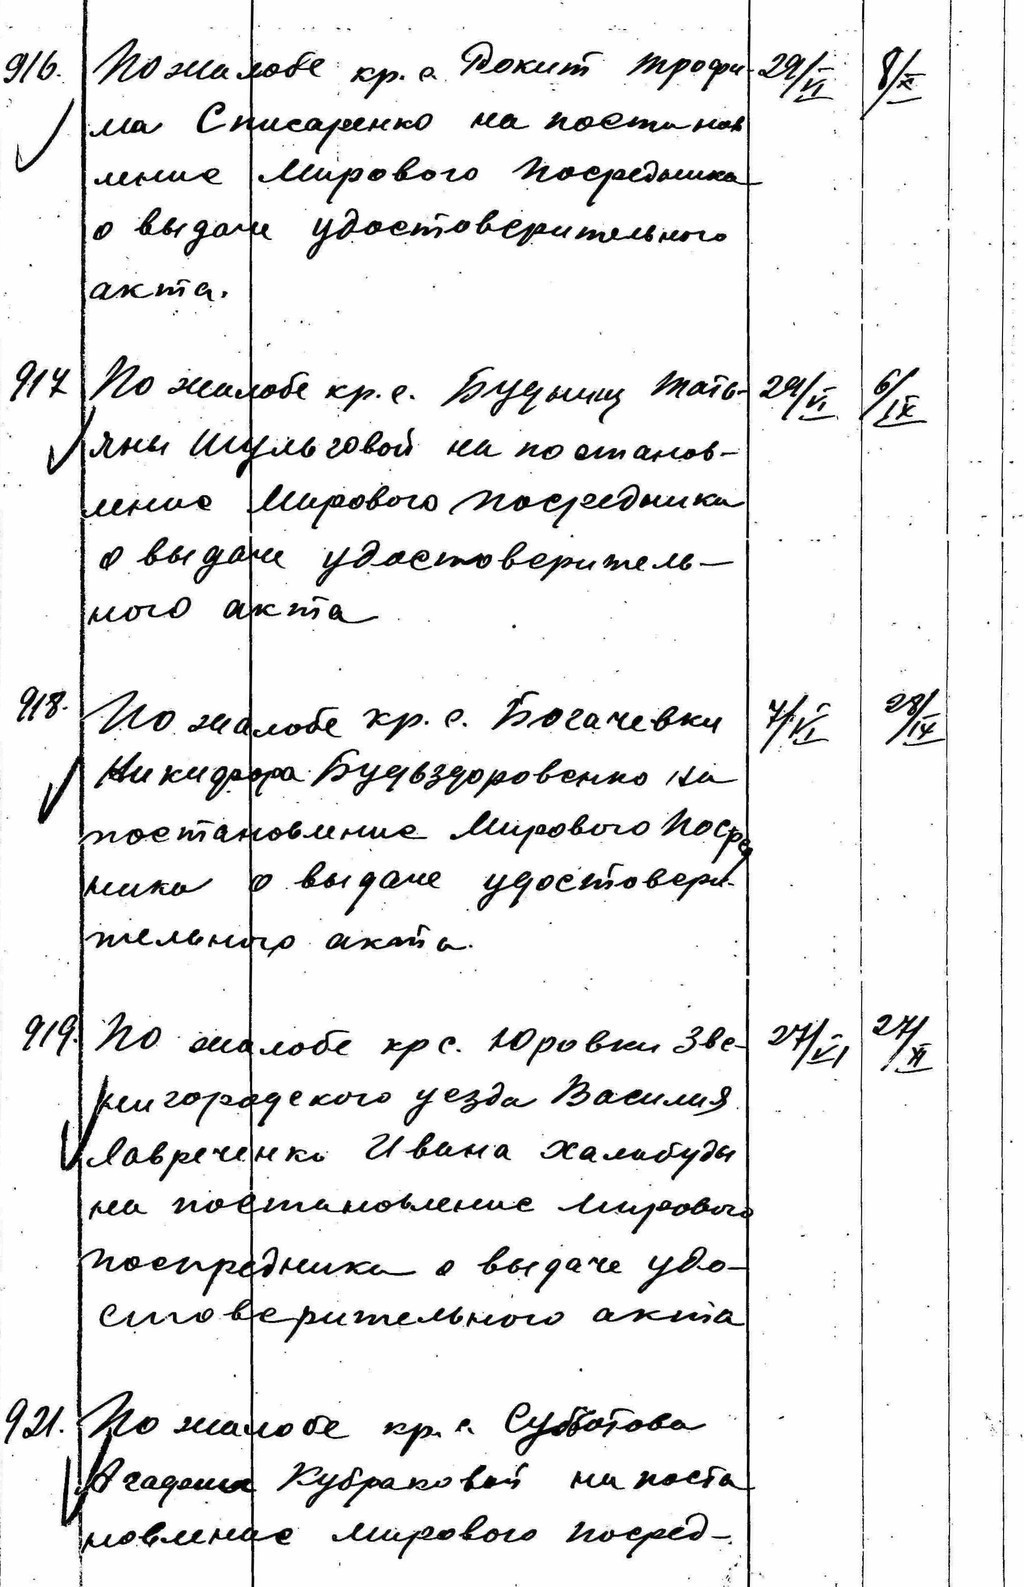 916. По жалобе кр. с. Рокит Трофи- 29/VI 8/X
ма Списаренко на постанов
ление Мирового Посредника
о выдаче удостоверительного
акта.
917 По жалобе кр. с. Будыщ Тать- 29/VI 6/IX
яны Шульговой на постанов-
ление Мирового Посредника
о выдаче удостоверитель-
ного акта
918. По жалобе кр. с. Богачевки 7/VI 28/IX
Никифора Будьздоровенко на
постановление Мирового Посред
ника о выдаче удостовери-
тельного акта.
919. По жалобе кр с. Юровки Зве- 27/VI 27/XI
нигородского уезда Василия
Лавреченко Ивана Халабуды
на постановление Мирового
посредника о выдаче удо-
стоверительного акта
921. По жалобе кр. с. Субботова
Агафьи Кубраковой на поста
новление Мирового Посред-